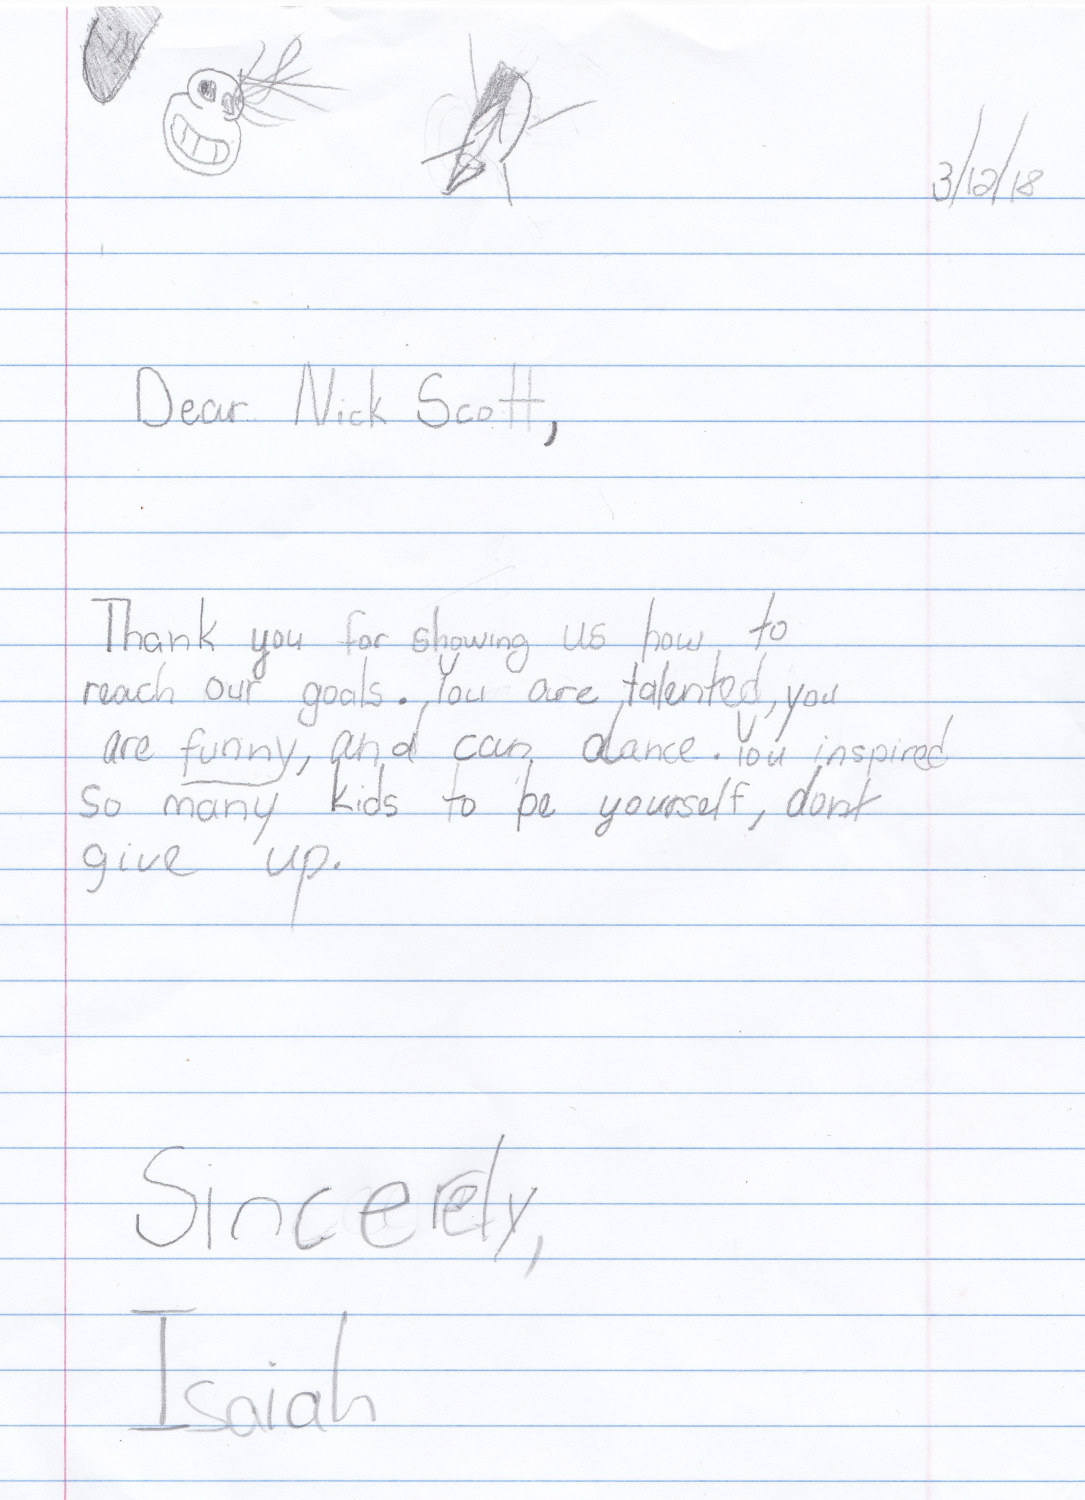 3/12/18
Dear Nick Scott,
Thank you for showing us how to
reach our goals. You are talented, you
are funny, and can dance. You inspired
so many kids to be yourself, dont
give up.
Sincerely,
Isaiah